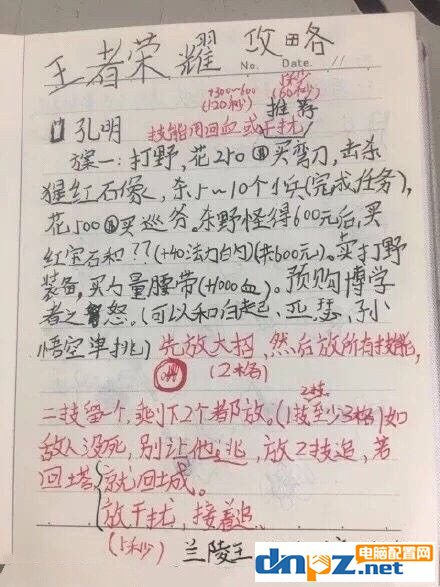 王者荣耀 攻略
No. Date. 11
+300~600 15秒
(120秒) (60秒)
推荐
孔明 技能用回血或干扰
方案一:打野,花250买弯刀,击杀
猩红石像,杀5~10个小兵(完成任务),
花500买巡务。杀野怪得600元后,买
红宝石和??(+40法力的)(共600元)。卖打野
装备,买力量腰带(+1000血)。预购博学
者之怒。(可以和白起、亚瑟、孙
悟空单挑)先放大招,然后放所有技能,
(2格)
2技
二技留一个,剩下2个都放。(1技至少3格)如
敌人没死,别让他逃,放2技追,若
回塔 就回城。
放干扰,接着追
(15秒)
兰陵王
电脑配置网
dnpz.net